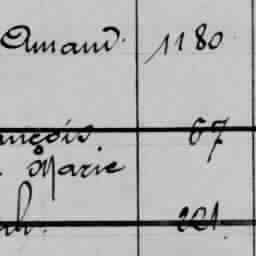 Amand. 1180
ançois. 67
Marie
221.